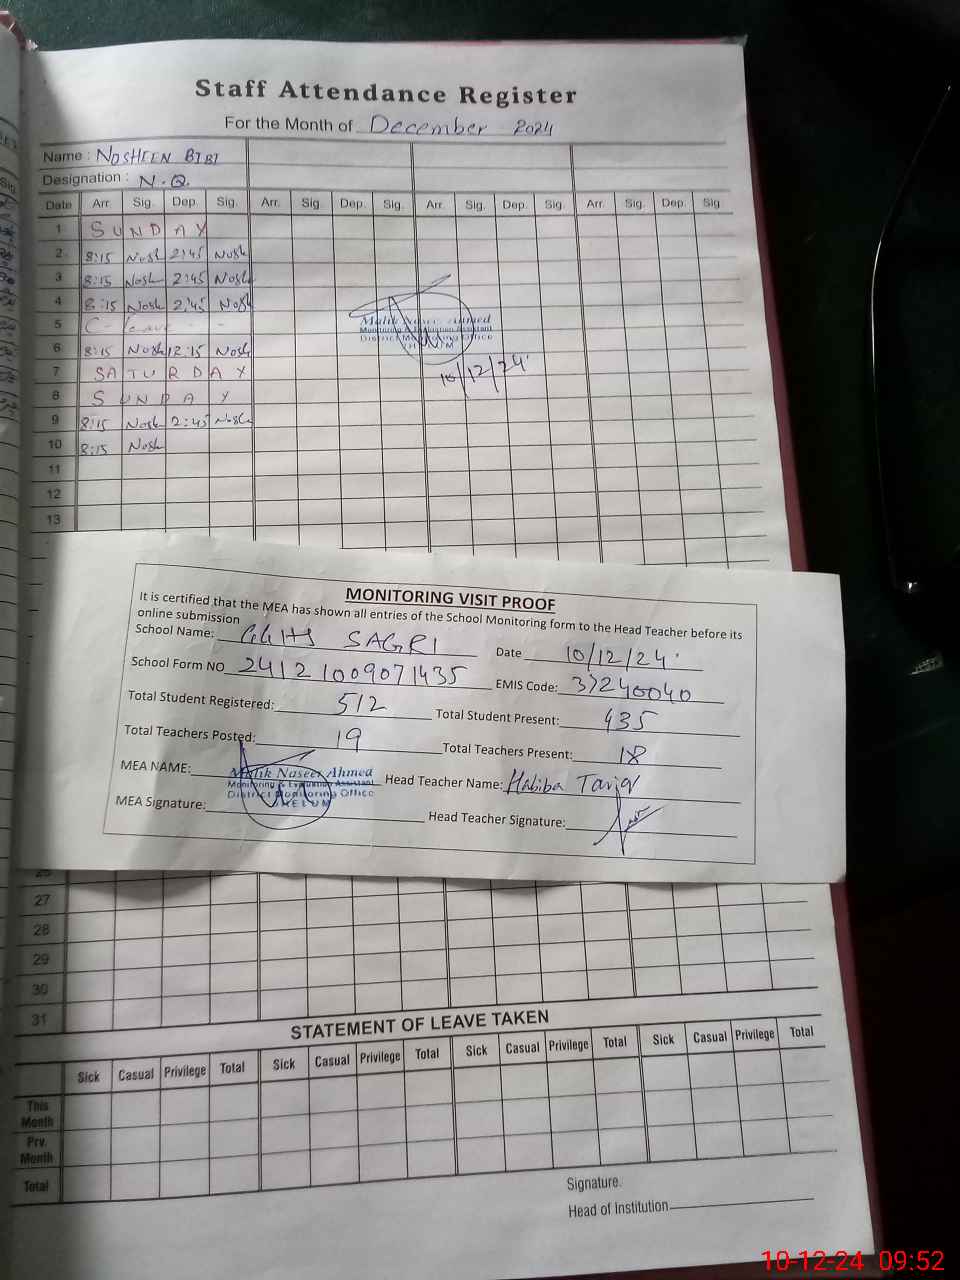 Staff Attendance Register
For the Month of December 2024
Name : NOSHEEN BIBI
Designation : N.Q.
Date Arr. Sig. Dep. Sig. Arr. Sig. Dep. Sig. Arr. Sig. Dep. Sig. Arr. Sig. Dep. Sig
1 SUNDAY
2 8:15 Nosh 2:45 Nosh
3 8:15 Nosh 2:45 Nosh
4 8:15 Nosh 2:45 Nosh
5 C- leave - -
6 8:15 Nosh 12:15 Nosh
7 SATURDAY
8 SUNDAY
9 8:15 Nosh 2:45 Nosh
10 8:15 Nosh
11
12
13
Malik Naseer Ahmed
Monitoring & Evaluation Assistant
District Monitoring Office
JHELUM
10/12/24
MONITORING VISIT PROOF
It is certified that the MEA has shown all entries of the School Monitoring form to the Head Teacher before its
online submission
School Name: GGHS SAGRI Date 10/12/24
School Form NO 24121009071435 EMIS Code: 37240040
Total Student Registered: 512 Total Student Present: 435
Total Teachers Posted: 19 Total Teachers Present: 18
MEA NAME: Malik Naseer Ahmed Head Teacher Name: Habiba Tariq
Monitoring & Evaluation Assistant
District Monitoring Office
JHELUM
MEA Signature: Head Teacher Signature:
26
27
28
29
30
31
STATEMENT OF LEAVE TAKEN
Sick Casual Privilege Total Sick Casual Privilege Total Sick Casual Privilege Total Sick Casual Privilege Total
This
Month
Prv.
Month
Total
Signature.
Head of Institution
10-12-24 09:52